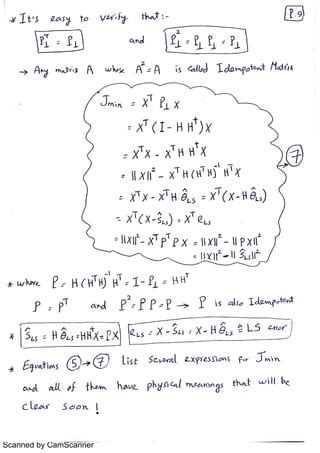 P.9
* It's easy to verify that :-
P⊥ᵀ = P⊥ and P⊥² = P⊥ P⊥ = P⊥
→ Any matrix A whose A² = A is called Idempotent Matrix
Jmin = Xᵀ P⊥ X
= Xᵀ (I - H H†) X
= XᵀX - Xᵀ H H† X
= ||X||² - Xᵀ H (HᵀH)⁻¹ Hᵀ X
= XᵀX - Xᵀ H θ̂LS = Xᵀ (X - H θ̂LS)
= Xᵀ (X - ŜLS) = Xᵀ eLS
= ||X||² - Xᵀ Pᵀ P X = ||X||² - ||P X||²
= ||X||² - || ŜLS ||²
7
* where P = H (HᵀH)⁻¹ Hᵀ = I - P⊥ = H H†
P = Pᵀ and P² = P P = P → P is also Idempotent
* ŜLS = H θ̂LS = H H† X = P X eLS = X - ŜLS = X - H θ̂LS ≜ LS error
* Equations 5 → 7 list several expressions for Jmin
and all of them have physical meanings that will be
clear soon !
Scanned by CamScanner